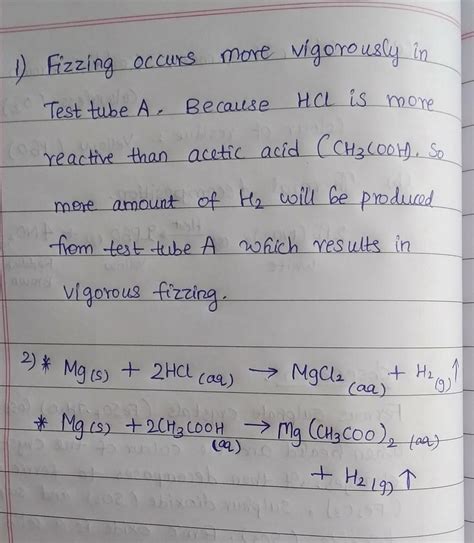 1) Fizzing occurs more vigorously in
Test tube A. Because HCl is more
reactive than acetic acid (CH3COOH). So
more amount of H2 will be produced
from test tube A which results in
vigorous fizzing.
2) * Mg(s) + 2HCl (aq) → MgCl2 (aq) + H2(g)↑
* Mg(s) + 2CH3COOH (aq) → Mg(CH3COO)2 (aq)
+ H2(g) ↑